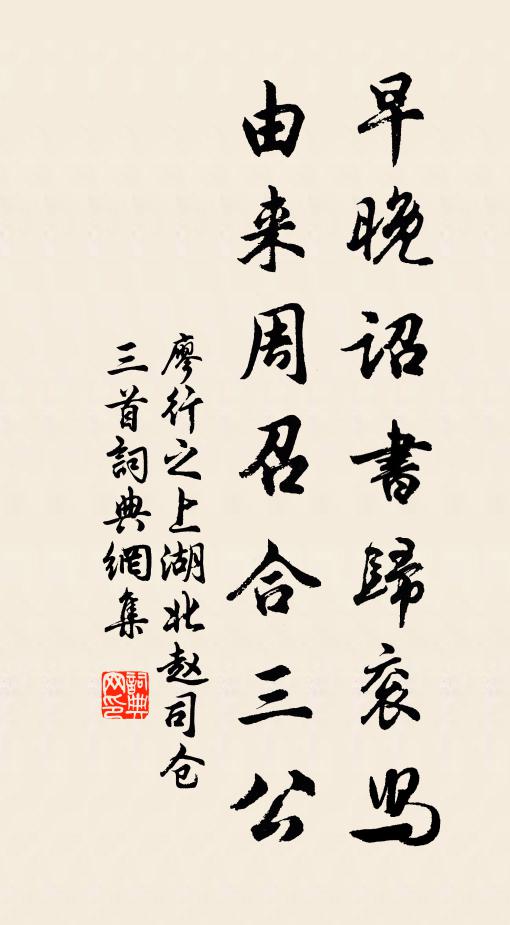 早晚詔書歸衮舄
由来周召合三公
廖行之上湖北赵司仓
三首詞典網集
詞典
网印